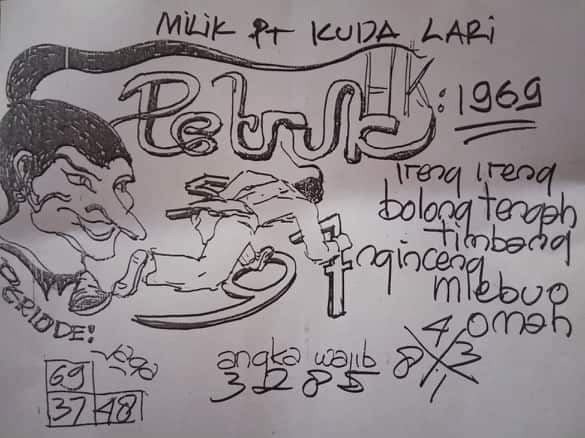 MILIK PT KUDA LARI
Petruk HK: 1969
ireng ireng
bolong tengah
timbang
nginceng
mlebuo
omah
PERIODE!
69
37 48
angka wajib
3 2 8 5
4
8 3
1